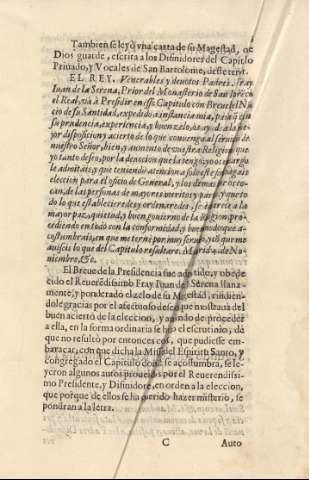 Tambien se leyò vna carta de su Magestad, que
Dios guarde, escrita a los Difinidores del Capitulo
Priuado, y Vocales de San Bartolome, deste tenor.
EL REY. Venerables y deuotos Padres, Fray
Iuan de la Serena, Prior del Monasterio de San
el Real, và à Presidir en esse Capitulo con Breue del Nun-
cio de su Santidad, expedido a instancia mia, para que
su prudencia, experiencia, y buen zelo, os ayude a la me-
jor disposicion y acierto de lo que conuenga al seruicio de
nuestro Señor, bien, y aumento de vuestra Religion que
yo tanto deseo, por la deuocion que la tengo, y os encargo
le admitais, y que teniendo atencion a
eleccion para el oficio de General, y los demas
can, de las personas de mayores meritos y
do lo que establecieredes y ordenaredes, se enderece a la
mayor paz, quietud, y buen gouierno de la Religion, pro-
cediendo en todo con la conformidad, y buen modo que a-
costumbrais, en que me tornè por muy seruido, y lo que me
auiseis lo que del Capitulo resultare. Madrid a de No-
uiembre, &c.
El Breue de la Presidencia fue admitido, y obede-
cido el Reuerendissimo Fray Iuan de la Serena llana-
mente, y ponderado el zelo de su Magestad, rindien-
dole gracias por el afectuoso deseo que mostraua del
buen acierto de la eleccion, y auiendo de proceder
a ella, en la forma ordinaria se hizo el escrutinio, de
que no resultò por entonces cosa, que pudiesse em-
baracar, con que dicha la Missa del Espiritu Santo, y
congregado el Capitulo donde se acostumbra, se le-
yeron algunos autos proueidos por el Reuerendissi-
mo Presidente, y Difinidores, en orden a la eleccion,
que porque de ellos se ha querido hazer misterio, se
pondran a la letra.
C Auto